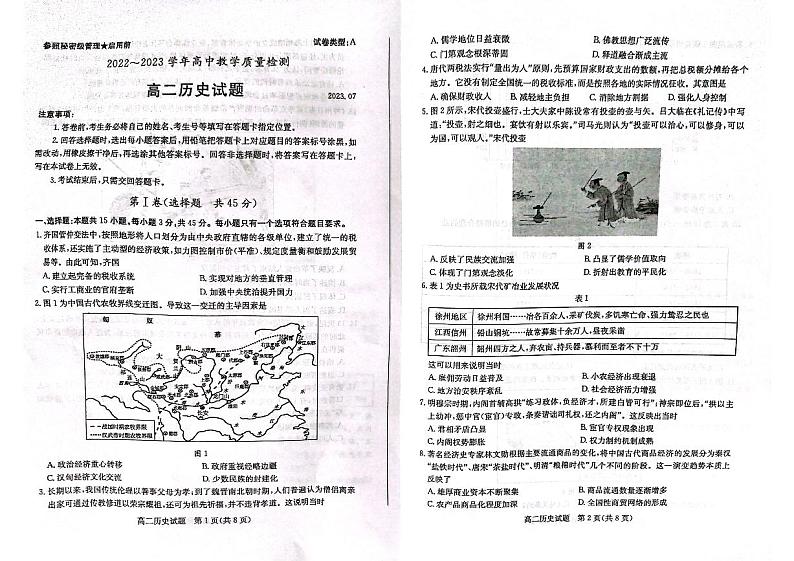 参照秘密级管理★启用前
试卷类型：A
2022～2023学年高中教学质量检测
高二历史试题
2023.07
注意事项：
1.答卷前，考生务必将自己的姓名、考生号等填写在答题卡指定位置。
2.回答选择题时，选出每小题答案后，用铅笔把答题卡上对应题目的答案标号涂黑，如
需改动，用橡皮擦干净后，再选涂其他答案标号。回答非选择题时，将答案写在答题卡上，
写在本试卷上无效。
3.考试结束后，只需交回答题卡。
第Ⅰ卷（选择题 共45分）
一、选择题：本题共15小题，每小题3分，共45分。每小题只有一个选项符合题目要求。
1.齐国管仲变法中，按照地形将人口划分为由中央政府直辖的各级单位，建立了统一的税
收体系，还实施了主动型的经济政策，如力图控制市价（平准）、规定度量衡和鼓励发展贸
易等。由此可知，齐国
A.建立起完备的税收系统
B.实现对地方的垂直管理
C.实行工商业的官府垄断
D.加强中央统治提升国力
2.图1为中国古代农牧界线变迁图。导致这一变迁的主导因素是
匈
奴
大
幕
阴山
战国时期农牧界限
汉武帝时期农牧界限
图1
A.政治经济重心转移
B.政府重视经略边疆
C.汉匈经济文化交流
D.少数民族的封建化
3.长期以来，我国传统伦理以善事父母为孝；到了魏晋南北朝时期，人们普遍认为僧侣离亲
出家可通过传教修道以荣宗耀祖，还可为祖先祈福，并不违背孝道。这说明当时
高二历史试题 第1页（共8页）
A.儒学地位日益衰微
B.佛教思想广泛流传
C.门第观念根深蒂固
D.释道融合渐成主流
4.唐代两税法实行“量出为入”原则，先预算国家财政支出的数额，再把总税额分摊给各个
地方。它没有制定全国统一的税收标准，而是按照各地的实际情况征收。其意图是
A.确保财政收入
B.减轻地主负担
C.消除地方割据
D.强化人身控制
5.图2所示，宋代投壶盛行，士大夫家中陈设常有投壶的壶与矢。吕大临在《礼记传》中写
道：“投壶，射之细也。宴饮有射以乐宾。”司马光则认为“投壶可以治心，可以修身，可以
为国，可以观人。”宋代投壶
图2
A.反映了民族交流加强
B.凸显了儒学价值取向
C.体现了门第观念淡化
D.折射出教育的平民化
6.表1为史书所载宋代矿冶业发展状况
表1
徐州地区 徐州利国……冶各百余人，采矿伐炭，多饥寒亡命、强力鸷忍之民也
江西信州 铅山铜坑……故常募集十余万人，昼夜采凿
广东韶州 韶州四方之人，弃农亩、持兵器，慕利而至者不下十万
这可以用来说明当时
A.雇佣劳动日益普及
B.小农经济出现衰退
C.地方治安秩序紊乱
D.社会经济活力增强
7.明穆宗时期，内阁首辅高拱“练习政体，负经济才，所建白皆可行”；神宗即位后，“拱以主
上幼冲，惩中官（宦官）专政，条奏请诎司礼权，还之内阁”。这反映出当时
A.君相矛盾凸显
B.宦官专权现象出现
C.内阁权势膨胀
D.权力制约机制成熟
8.著名经济史专家林文勋根据主要流通商品的变化，将中国古代商品经济的发展分为秦汉
“盐铁时代”、唐宋“茶盐时代”、明清“粮棉时代”几个不同的阶段。这一演变趋势本质上
反映了
A.地厚商业资本不断聚集
B.商品流通数量逐渐增多
C.农产品商品化程度加深
D.全国性商贸网络的形成
高二历史试题 第2页（共8页）